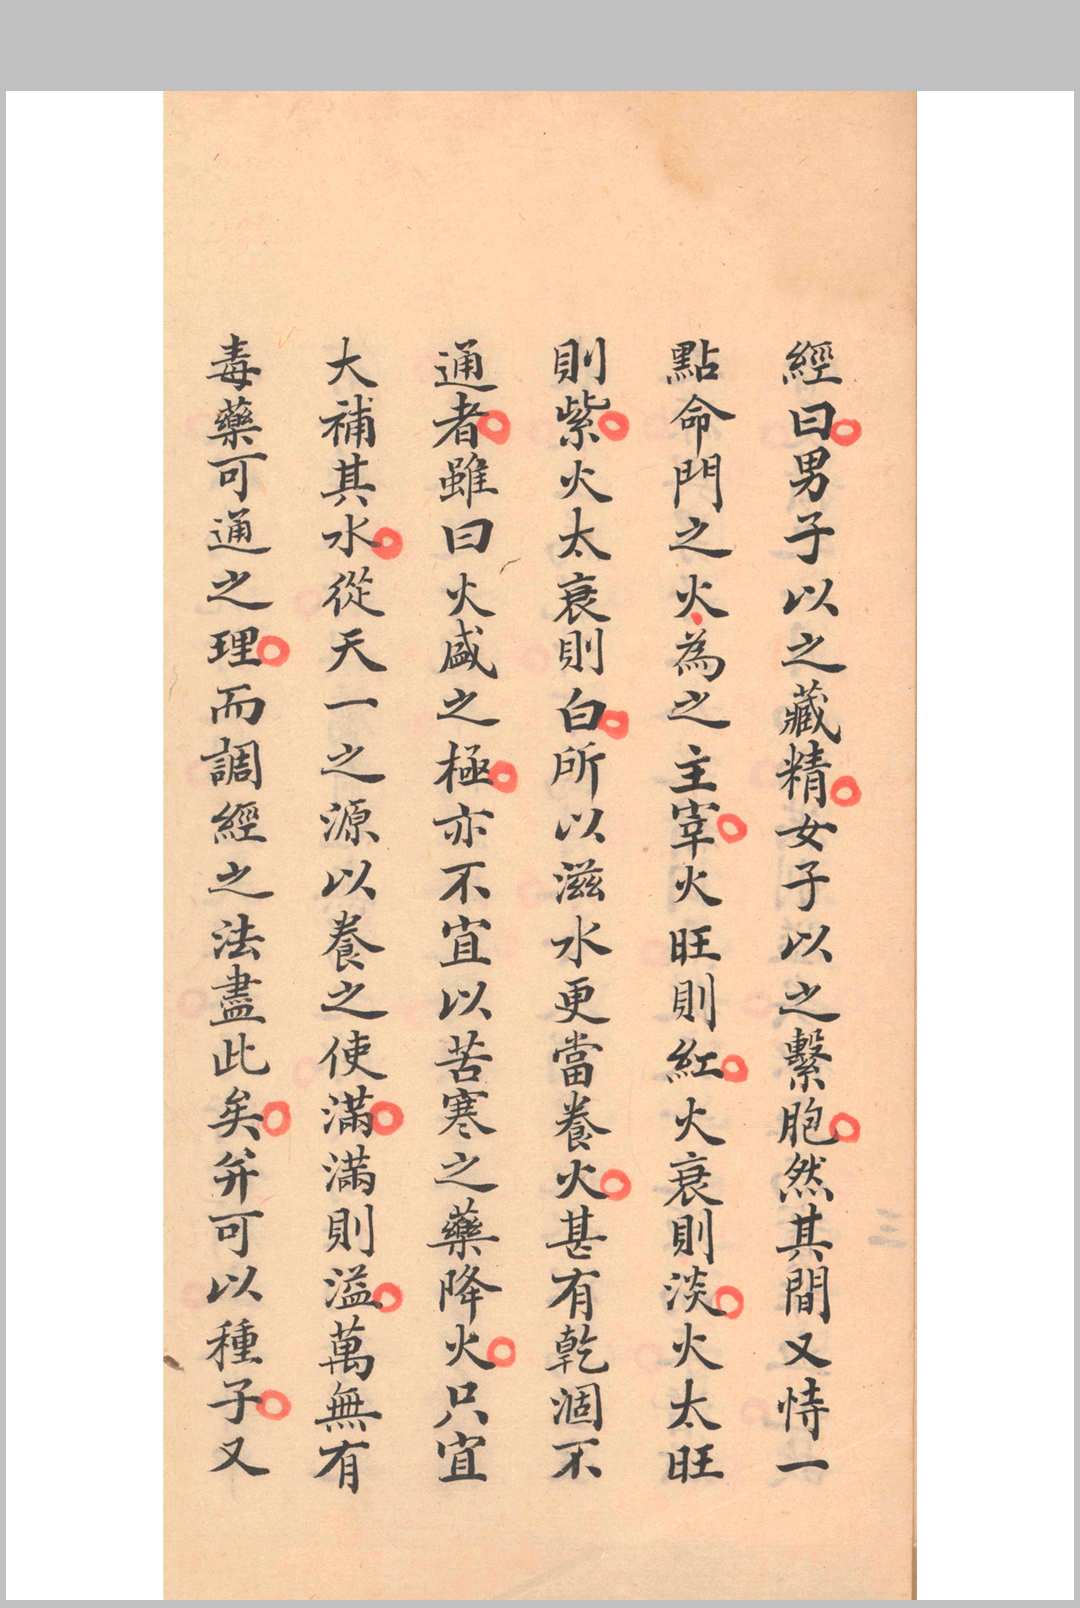 經曰男子以之藏精女子以之繫胞然其間又恃一
點命門之火為之主宰火旺則紅火衰則淡火太旺
則紫火太衰則白所以滋水更當養火甚有乾涸不
通者雖曰火盛之極亦不宜以苦寒之藥降火只宜
大補其水從天一之源以養之使滿滿則溢萬無有
毒藥可通之理而調經之法盡此矣并可以種子又